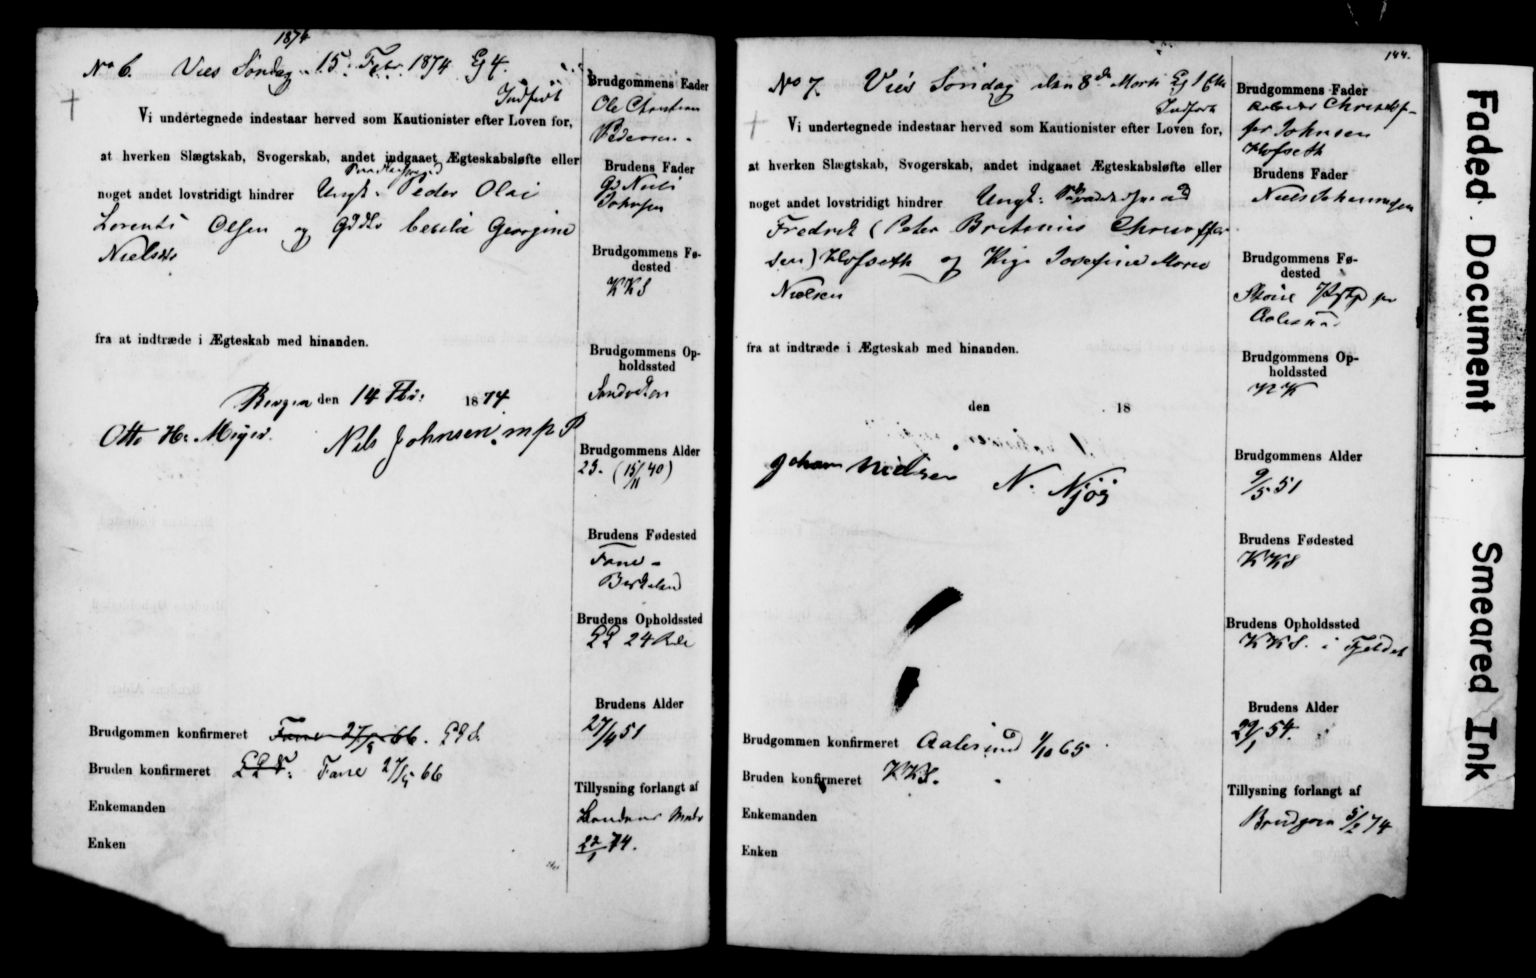 1874
No 6. Vies Søndag 15. Febr. 1874 Kl 4.
Indført
Vi undertegnede indestaar herved som Kautionister efter Loven for,
at hverken Slægtskab, Svogerskab, andet indgaaet Ægteskabsløfte eller
noget andet lovstridigt hindrer Ungk. Peder Olai
Lorents Olsen og Cecilie Georgine
Nielsdtr
fra at indtræde i Ægteskab med hinanden.
Bergen den 14 Febr. 1874
Otto H. Meyer. Nils Johnsen. m p P
Brudgommen konfirmeret
Bruden konfirmeret Fane 27/5 66
Enkemanden
Enken
Brudgommens Fader
Ole Christian
Pedersen
Brudens Fader
Niels
Johnsen
Brudgommens Fø-
dested
KKS
Brudgommens Op-
holdssted
Sandviken
Brudgommens Alder
23. (15/11 40)
Brudens Fødested
Fane -
Birkeland
Brudens Opholdssted
24 Rode
Brudens Alder
27/4 51
Tillysning forlangt af
22/1 74.
144.
No 7. Viės Søndag den 8de Marts Kl
Indført
Vi undertegnede indestaar herved som Kautionister efter Loven for,
at hverken Slægtskab, Svogerskab, andet indgaaet Ægteskabsløfte eller
noget andet lovstridigt hindrer Ungk:
Fredrik (Peter Britanius Christoffer
sen) Hofseth og Pige Josefine Marie
Nielsen
fra at indtræde i Ægteskab med hinanden.
den 18
Johan Nielsen N. Njøs
Brudgommen konfirmeret Aalesund 1/10 65
Bruden konfirmeret KKS.
Enkemanden
Enken
Brudgommens Fader
Arbeider Christof-
fer Johnsen
Hofseth
Brudens Fader
Niels Johannesen
Brudgommens Fø-
dested
Præstgj
Aalesund
Brudgommens Op-
holdssted
NK
Brudgommens Alder
9/5 51
Brudens Fødested
KKS
Brudens Opholdssted
KKS. i Fjeldet
Brudens Alder
29/1 54.
Tillysning forlangt af
Brudgom 5/2 74
Faded Document
Smeared Ink